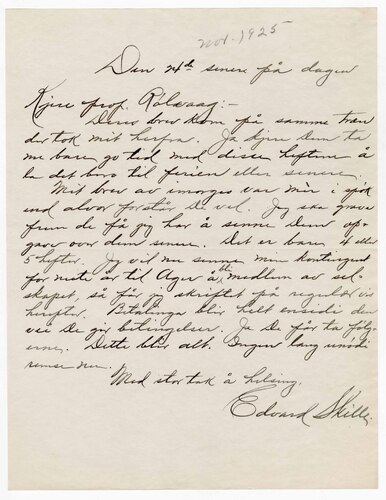 Nov. 1925
Den 4de senere på dagen
Kjære prof. Rölvaag:-
Deres brev kom på samme træn
der tok mit herfra. Ja kjære Dem ta
nu bare go tid med disse hefterne å
la det bero til ferien eller senere.
Mit brev av imorges var mer i spök
end alvor forstår De vel. Jeg ska grave
frem de få jeg har å senne Dem op-
gave over dem senere. Det er bare 4 eller
5 hefter. Jeg vil nu senne min kontingent
for neste år til Ager å bli medlem av sel-
skapet, så får jeg skriftet på regulær vis
herefter. Betalinga blir helt ensidi den
vei De gir betingelser. Ja De får ta følg-
erne. Dette blir alt. Ingen lang unödi
remse nu.
Med stor tak å helsing.
Edvard Skille.